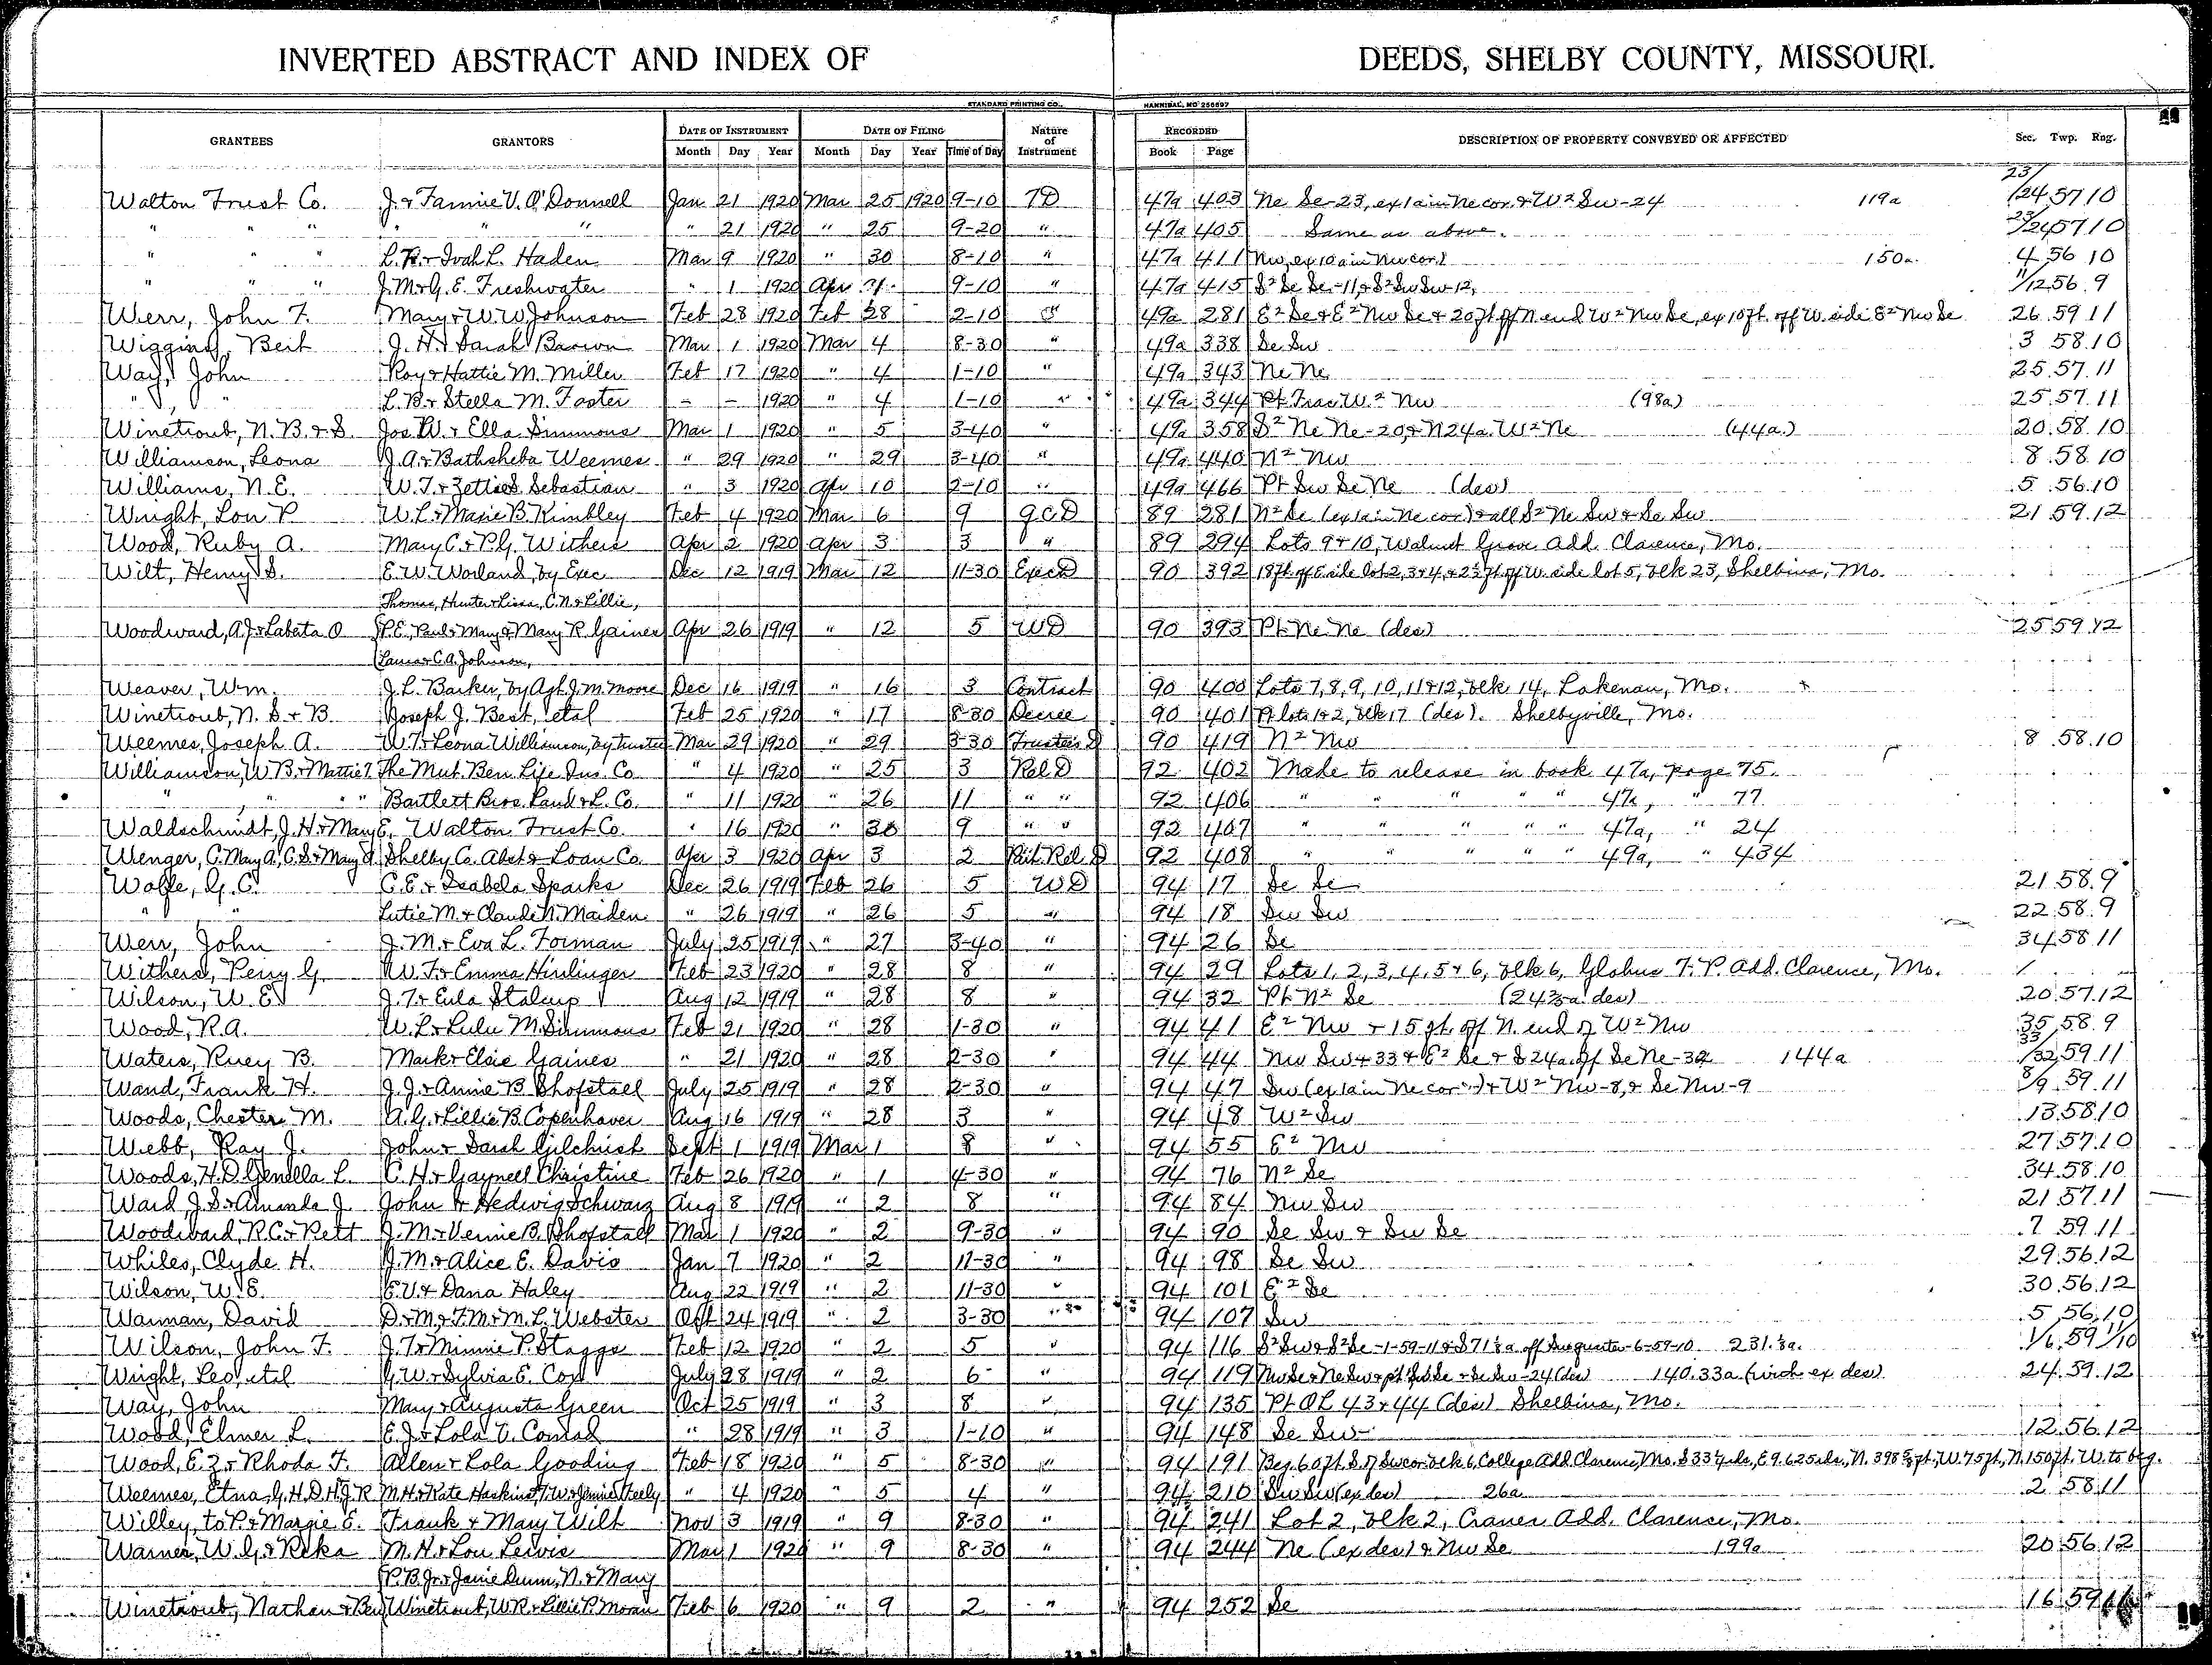 INVERTED ABSTRACT AND INDEX OF DEEDS, SHELBY COUNTY, MISSOURI.
STANDARD PRINTING CO., HANNIBAL, MO 256697
GRANTEES GRANTORS DATE OF INSTRUMENT DATE OF FILING Nature of Instrument RECORDED DESCRIPTION OF PROPERTY CONVEYED OR AFFECTED Sec. Twp. Rng.
Month Day Year Month Day Year Time of Day Book Page
Walton Trust Co. J. & Fannie V. O'Donnell Jan 21 1920 Mar 25 1920 9-10 TD 47a 403 Ne Se-23, ex 1a in Ne cor & W² Sw-24 119a 23/24 57 10
" " " " " " " 21 1920 " 25 9-20 " 47a 405 Same as above. 23/24 57 10
" " " L.R. & Ivah L. Haden Mar 9 1920 " 30 8-10 " 47a 411 Nw, ex 10a in Nw cor) 150a 4 56 10
" " " J.M. & G.E. Freshwater " 1 1920 Apr 9-10 " 47a 415 S² Se Se-11, & S² Sw Sw-12, 11/12 56 9
Werr, John F. Mary & W.W. Johnson Feb 28 1920 Feb 28 2-10 49a 281 E² Se & E² Nw Se & 20 ft off N end W² Nw Se, ex 10 ft. off W. side S² Nw Se 26 59 11
Wiggins, Bert J.H. & Sarah Brown Mar 1 1920 Mar 4 8-30 " 49a 338 Se Sw 3 58 10
Way, John Roy & Hattie M. Miller Feb 17 1920 " 4 1-10 " 49a 343 Ne Ne 25 57 11
" " L.B. & Stella M. Foster - - 1920 " 4 1-10 " 49a 344 Pt Frac W² Nw (98a) 25 57 11
Winetroub, N.B. & S. Jos. W. & Ella Simmons Mar 1 1920 " 5 3-40 " 49a 358 S² Ne Ne-20, & N24a. W² Ne (44a.) 20 58 10
Williamson, Leona J.A. & Bathsheba Weemes " 29 1920 " 29 3-40 " 49a 440 N² Nw 8 58 10
Williams, N.E. W.T. & Sebastian " 3 1920 Apr 10 2-10 " 49a 466 Pt Sw Se Ne (des) 5 56 10
Wright, Lon P. W.L. & Marie B. Kimbley Feb 4 1920 Mar 6 9 QCD 89 281 N² Se (ex 1a in Ne cor) & all S² Ne Sw & Se Sw 21 59 12
Wood, Ruby A. Mary C. & P.G. Withers Apr 2 1920 Apr 3 3 " 89 294 Lots 9 & 10, Walnut Grove Add. Clarence, Mo.
Wilt, Henry S. E.W. Worland, by Exec Dec 12 1919 Mar 12 11-30 Exec D 90 392 18 ft. off E side lot 2, 3 & 4, & 2½ ft off W. side lot 5, blk 23, Shelbina, Mo.
Thomas, Hunter & Lissa, C.N. & Lillie,
Woodward, A.J. & Labata O P.E. Paul & Mary & Mary R. Gaines Apr 26 1919 " 12 5 WD 90 393 Pt Ne Ne (des) 25 59 12
C.A. Johnson,
Weaver, Wm. J.L. Barker, by Agt. J.M. Moore Dec 16 1919 " 16 3 Contract 90 400 Lots 7, 8, 9, 10, 11 & 12, blk 14, Lakenan, Mo.
Winetroub, N. S. & B. Joseph J. Best, etal Feb 25 1920 " 17 8-30 Decree 90 401 Pt lots 1 & 2, blk 17 (des). Shelbyville, Mo.
Weemes, Joseph A. W.T. & Leona Williamson, by trustee Mar 29 1920 " 29 3-30 Trustee's D 90 419 N² Nw 8 58 10
Williamson, W.B. & Mattie T. The Mut. Ben. Life Ins. Co. " 4 1920 " 25 3 Rel D 92 402 Made to release in book 47a, page 75.
" " " " Bartlett Bros. Land & L. Co. " 11 1920 " 26 11 " " 92 406 " " " " " 47a, " 77
Waldschmidt, J.H. & Mary E. Walton Trust Co. " 16 1920 " 30 9 " " 92 407 " " " " " 47a, " 24
Wenger, C. Mary A., C.S. & Mary A. Shelby Co. Abst & Loan Co. Apr 3 1920 Apr 3 2 Part. Rel. D 92 408 " " " " " 49a, " 434
Wolfe, G.C. C.E. & Isabela Sparks Dec 26 1919 Feb 26 5 WD 94 17 Se Se 21 58 9
" " Lutie M. & Claude N. Maiden " 26 1919 " 26 5 " 94 18 Sw Sw 22 58 9
Werr, John J.M. & Eva L. Forman July 25 1919 " 27 3-40 " 94 26 Se 34 58 11
Withers, Perry G. W.F. & Emma Hirlinger Feb 23 1920 " 28 8 " 94 29 Lots 1, 2, 3, 4, 5 & 6, blk 6, Globus T.P. Add. Clarence, Mo.
Wilson, W.E. J.T. & Eula Stalcup Aug 12 1919 " 28 8 " 94 32 Pt N² Se 20 57 12
Wood, R.A. W.L. & Lulu M. Simmons Feb 21 1920 " 28 1-30 " 94 41 E² Nw & 15 ft. off N. end of W² Nw 35 58 9
Waters, Ruey B. Mark & Elsie Gaines " 21 1920 " 28 2-30 " 94 44 Nw Sw & 33 & E² Se & S 24a. off Se Ne-32 144a 33/32 59 11
Wand, Frank H. J.J. & Annie B. Shofstall July 25 1919 " 28 2-30 " 94 47 Sw (ex 1a in Ne cor) & W² Nw-8, & Se Nw-9 8/9 59 11
Woods, Chester M. A.G. & Lillie B. Copenhaver Aug 16 1919 " 28 3 " 94 48 W² Sw 13 58 10
Webb, Ray J. John & Sarah Gilchrist Sept 1 1919 Mar 1 8 " 94 55 E² Nw 27 57 10
Woods, H.D. Genella L. C.H. & Gaynell Christine Feb 26 1920 " 1 4-30 94 76 N² Se 34 58 10
Ward J.S. & Amanda J. John & Hedwig Schwarz Aug 8 1919 " 2 8 " 94 84 Nw Sw 21 57 11
Woodward R.C. & Rett J.M. & Vennie B. Shofstall Mar 1 1920 " 2 9-30 " 94 90 Se Sw & Sw Se 7 59 11
Whiles, Clyde H. J.M. & Alice E. Davis Jan 7 1920 " 2 11-30 " 94 98 Se Sw 29 56 12
Wilson, W.E. E.V. & Dana Haley Aug 22 1919 " 2 11-30 " 94 101 E² Se 30 56 12
Warman, David D. & M. & F.M. & M.L. Webster Oct 24 1919 " 2 3-30 " 94 107 Sw 5 56 10
Wilson, John F. J.T. & Minnie P. Staggs Feb 12 1920 " 2 5 " 94 116 S² Sw & S² Se-1-59-11 & S 71⅛a off Sw quarter-6-59-10 231.⅛a. 1/6 59 11/10
Wright, Leo etal G.W. & Sylvia E. Cox July 28 1919 " 2 6 " 94 119 Nw Se & Ne Sw & pt Sw Se & Se Sw-24 (des) 140.33a (which ex des) 24 59 12
Way, John Mary & Augusta Green Oct 25 1919 " 3 8 " 94 135 Pt OL 43 & 44 (des) Shelbina, Mo.
Wood, Elmer L. E.J. & Lola V. Conrad " 28 1919 " 3 1-10 " 94 148 Se Sw 12 56 12
Wood, E.Z. & Rhoda F. Allen & Lola Gooding Feb 18 1920 " 5 8-30 " 94 191 Beg. 60 ft S. of Sw cor blk 6, College Add. Clarence, Mo. S 33¼ rds, E 9.625 rds, N. 398 ft, W. 75 ft, N. 150 ft. W. to beg.
Weemes, Etna, G.H.D.H.J.R. M.H. & Kate Haskins, J.W. & Jennie Steely " 4 1920 " 5 4 " 94 210 Sw Sw (ex des) 26a 2 58 11
Willey, & Margie E. Frank & Mary Wilt Nov 3 1919 " 9 8-30 " 94 241 Lot 2, blk 2, Craner Add. Clarence, Mo.
Warner, W.G. & Reka M.H. & Lou Lewis Mar 1 1920 " 9 8-30 " 94 244 Ne (ex des) & Nw Se 199a 20 56 12
P.B. Jr. & Janie Dunn, N. & Mary
Winetroub, Nathan & Ben Winetroub, W.R. & Lillie P. Moran Feb 6 1920 " 9 2 " 94 252 Se 16 59